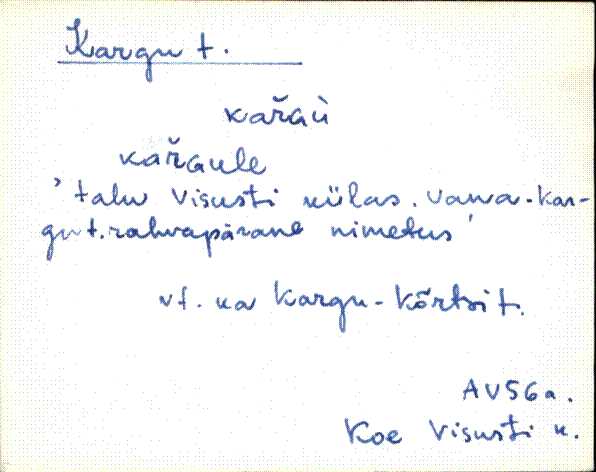 Kargu t.
kařaù
kařaule
'talu Visusti külas. Vana-Kar-
gu t. rahvapärane nimetus'
vt. ka Kargu-Kõrtsi t.
AV56a.
Koe Visusti k.